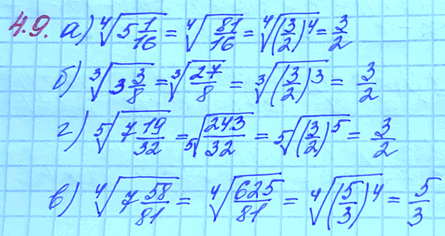 4.9. а) ⁴√(5 1/16) = ⁴√(81/16) = ⁴√((3/2)⁴) = 3/2
б) ³√(3 3/8) = ³√(27/8) = ³√((3/2)³) = 3/2
г) ⁵√(7 19/32) = ⁵√(243/32) = ⁵√((3/2)⁵) = 3/2
в) ⁴√(7 58/81) = ⁴√(625/81) = ⁴√((5/3)⁴) = 5/3